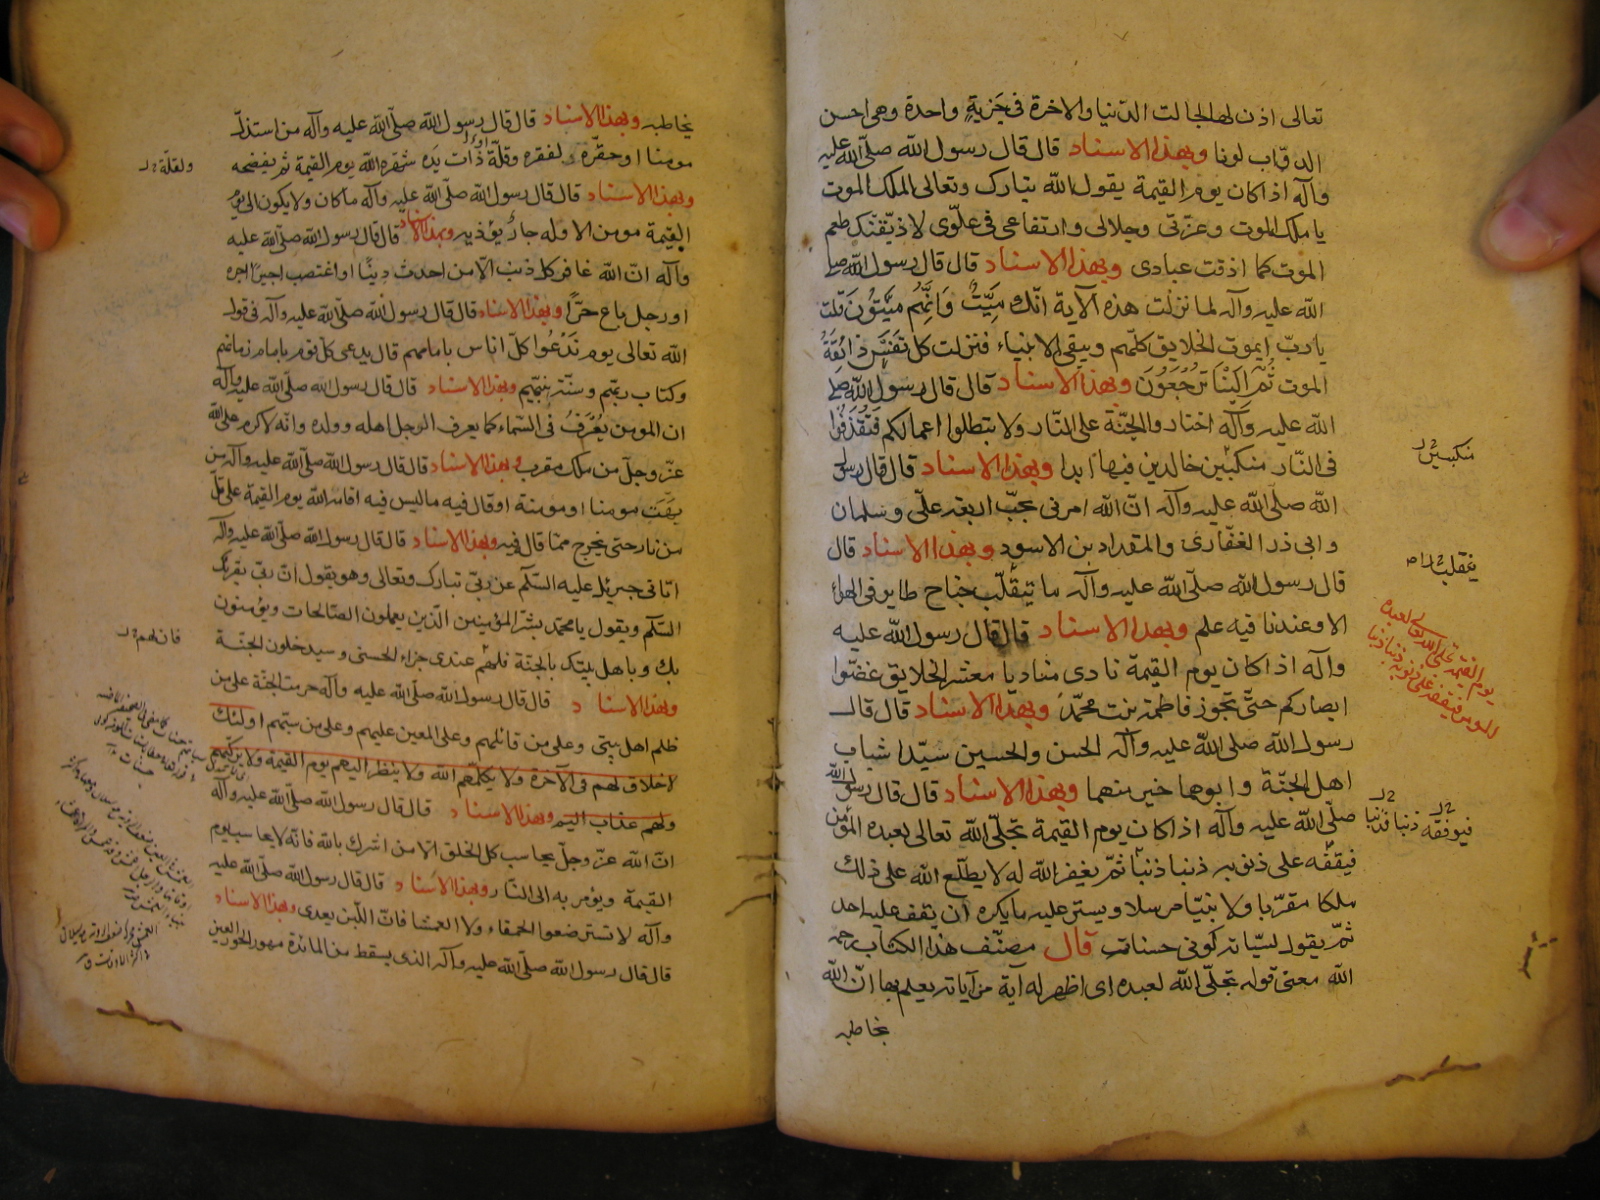 تعالى اذن لها لجالت الدنيا والاخرة في جرية واحدة وهي احسن
الدواب لونا وبهذا الاسناد قال قال رسول الله صلّى الله عليه
وآله اذا كان يوم القيمة يقول الله تبارك وتعالى لملك الموت
يا ملك الموت وعزتي وجلالي وارتفاعي في علوّي لاذيقنّك طعم
الموت كما اذقت عبادي وبهذا الاسناد قال قال رسول الله صلى
الله عليه وآله لما نزلت هذه الآية انّك مَيِّتٌ وَاِنَّهُم مَيِّتُونَ قلت
يا ربّ ايموت الخلايق كلّهم ويبقى الانبياء فنزلت كل نَفسٍ ذائِقَةُ
الموت ثُمَّ اِلَيْنَا تُرْجَعُوْنَ وبهذا الاسناد قال قال رسول الله صلى
الله عليه وآله اختاروا الجنّة على النّار ولا تبطلوا اعمالكم فَتُقْذَفُوا
في النّار منكبّين خالدين فيها ابدا وبهذا الاسناد قال قال رسول
الله صلّى الله عليه وآله انّ الله امرني بحبّ اربعة علّي وسلمان
وابي ذر الغفّاري والمقداد بن الاسود وبهذا الاسناد قال
قال رسول الله صلّى الله عليه وآله ما يتقلّب جناح طاير في الهواء
الا وعندنا فيه علم وبهذا الاسناد قال قال رسول الله عليه
وآله اذا كان يوم القيمة نادى مناد يا معشر الخلايق غضّوا
ابصاركم حتّى تجوز فاطمة بنت محمّد وبهذا الاسناد قال قال
رسول الله صلّى الله عليه وآله الحسن والحسين سيّدا شباب
اهل الجنّة وابوهما خير منهما وبهذا الاسناد قال قال رسول الله
صلّى الله عليه وآله اذا كان يوم القيمة تجلّى الله تعالى لعبده المؤمن
فيقفّه على ذنوبه ذنبا ذنبا ثمّ يغفر الله له لا يطلّع الله على ذلك
ملكا مقرّبا ولا نبيّا مرسلا ويستر عليه ما يكره ان يقف عليه احد
ثمّ يقول لسيّاته كوني حسنات قال مصنّف هذا الكتاب رحمه
الله معنى قوله تجلّى الله لعبده اى اظهر له آية من آياته يعلم بها انّ الله
يخاطبه
منكبين
يتقلب
يوم القيمة تجلى الله تعالى لعبده
المومن فيقفه على ذنوبه ذنبا ذنبا
فيوقفه ذنبا فذنبا
يخاطبه وبهذا الاسناد قال قال رسول الله صلّى الله عليه وآله من استذلّ
مومنا او حقّره لفقره وقلّة ذات يده شهّره الله يوم القيمة ثم يفضحه
وبهذا الاسناد قال قال رسول الله صلّى الله عليه وآله ما كان ولا يكون الى يوم
القيمة مومن الا وله جار يؤذيه وبهذا الاسناد قال قال رسول الله صلى الله عليه
وآله انّ الله غافر كل ذنب الّا من احدث دينًا او اغتصب اجيرًا اجره
او رجل باع حرّا وبهذا الاسناد قال قال رسول الله صلّى الله عليه وآله في قول
الله تعالى يوم نَدْعُوا كلّ اناس بامامهم قال يدعى كلّ قوم بامام زمانهم
وكتاب ربّهم وسنّة نبيّهم وبهذا الاسناد قال قال رسول الله صلّى الله عليه وآله
ان المومن يُعْرَفُ في السّماء كما يعرف الرجل اهله وولده وانّه لاكرم على الله
عزّ وجلّ من ملك مقرب وبهذا الاسناد قال قال رسول الله صلّى الله عليه وآله من
بهَتَ مومنا او مومنة او قال فيه ما ليس فيه اقامه الله يوم القيمة على تلّ
من نار حتى يخرج ممّا قال فيه وبهذا الاسناد قال قال رسول الله صلى الله عليه وآله
اتاني جبريل عليه السلم عن ربّي تبارك وتعالى وهو يقول انّ ربّي يقرئك
السلم ويقول يا محمد بشّر المؤمنين الّذين يعملون الصّالحات ويؤمنون
بك وباهل بيتك بالجنّة فلهم عندي جزاء الحسنى وسيدخلون الجنّة
وبهذا الاسناد قال قال رسول الله صلّى الله عليه وآله حرمت الجنّة على من
ظلم اهل بيتي وعلى من قاتلهم وعلى المعين عليهم وعلى من سبّهم اولئك
لا خلاق لهم في الآخرة ولا يكلّمهم الله ولا ينظر اليهم يوم القيمة ولا يزكّيهم
ولهم عذاب اليم وبهذا الاسناد قال قال رسول الله صلّى الله عليه وآله
انّ الله عزّ وجلّ يحاسب كل الخلق الّا من اشرك بالله فانّه لا يحاسب يوم
القيمة ويؤمر به الى النّار وبهذا الاسناد قال قال رسول الله صلّى الله عليه
وآله لا تسترضعوا الحمقاء ولا العمشا فانّ اللّبن يعدى وبهذا الاسناد
قال قال رسول الله صلّى الله عليه وآله الذي يسقط من المائدة مهور الحور العين
ولقلّة
فان لهم